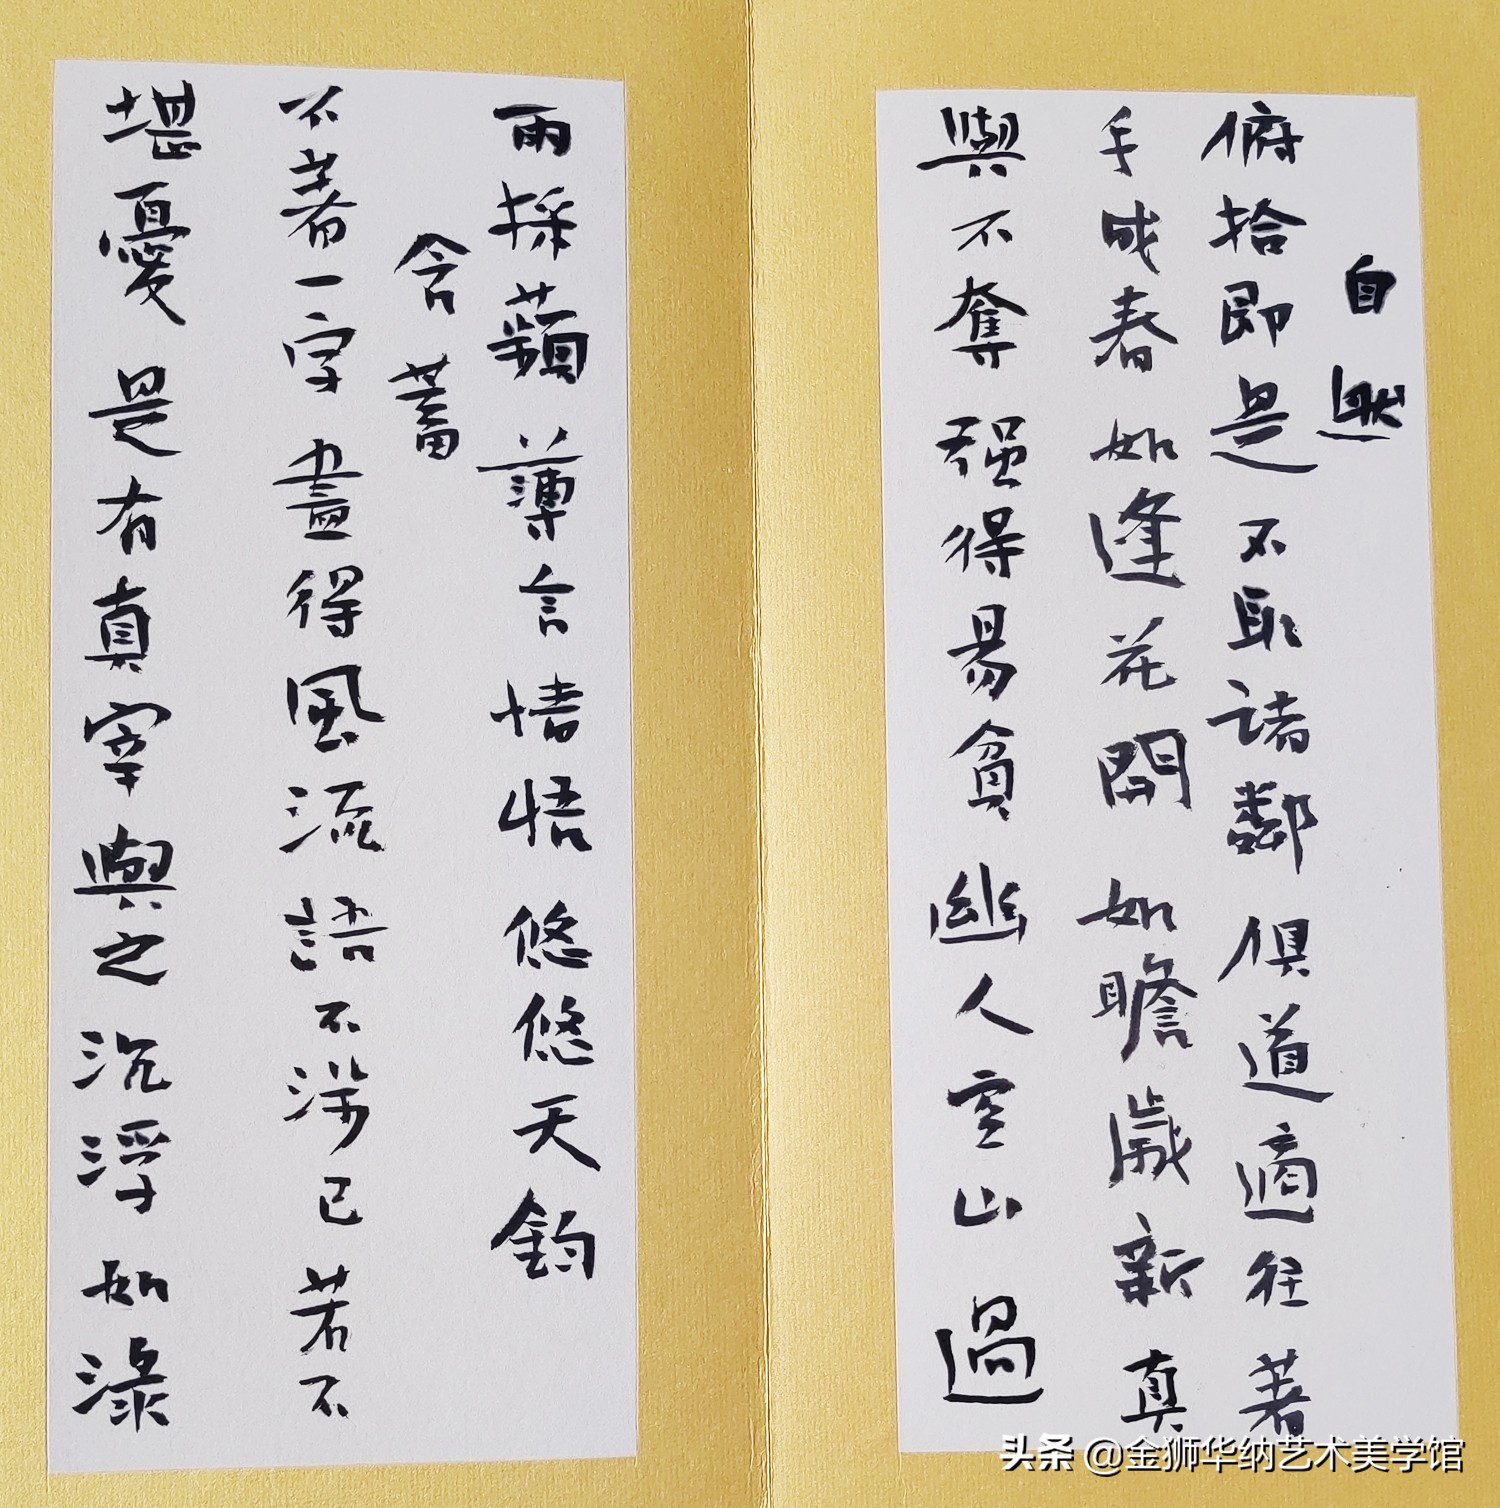 自然
俯拾即是不取諸鄰俱道適往著
手成春如逢花開如瞻歲新真
與不奪强得易貧幽人空山過
雨採蘋薄言情悟悠悠天鈞
含蓄
不著一字盡得風流語不涉已若不
堪憂是有真宰與之沉浮如淥
头条 @金狮华纳艺术美学馆